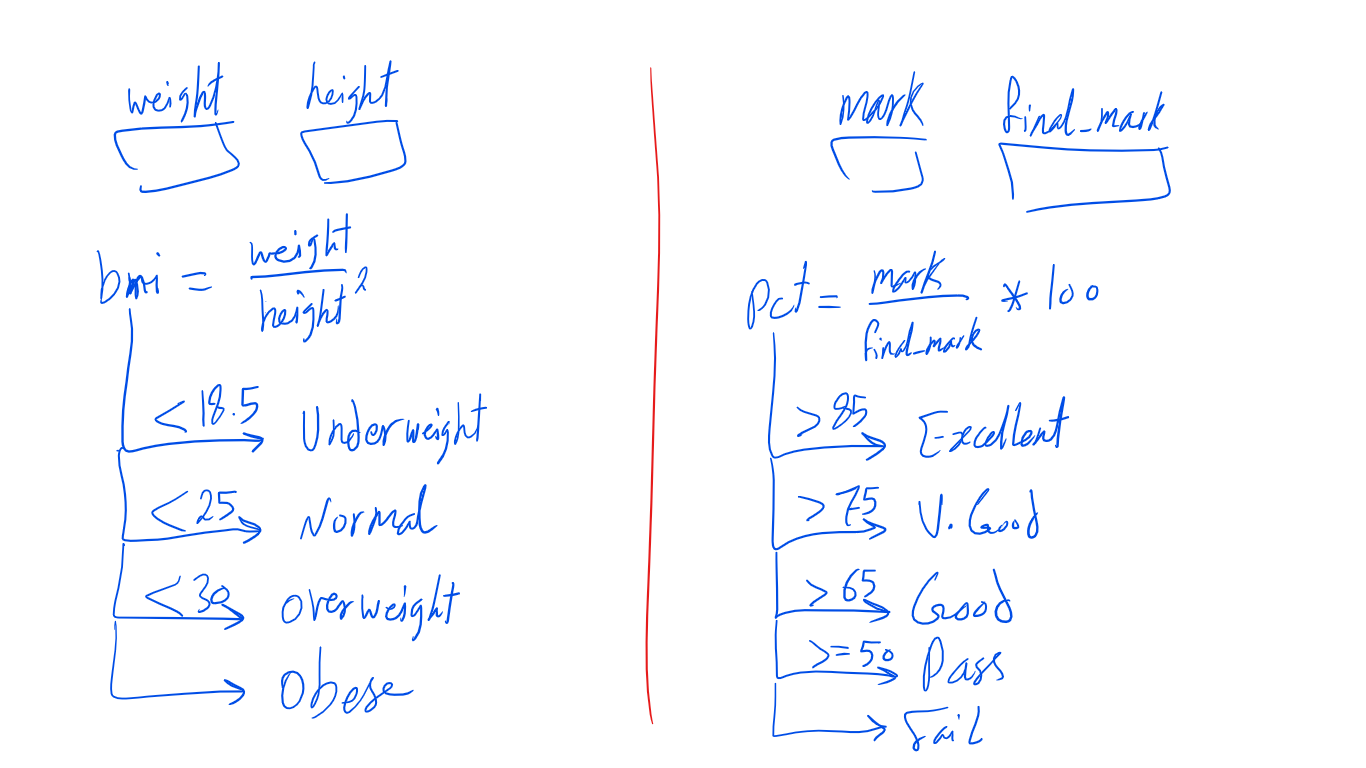 weight height
bmi = weight / height²
< 18.5 Underweight
< 25 Normal
< 30 overweight
Obese
mark final_mark
Pct = mark / final_mark * 100
> 85 Excellent
> 75 V. Good
> 65 Good
>= 50 Pass
Fail